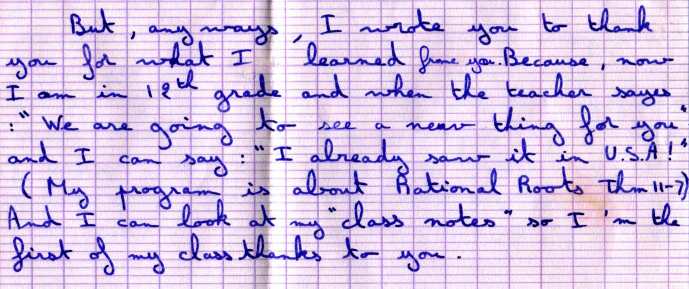 But, any ways, I wrote you to thank
you for what I learned from you. Because, now
I am in 12th grade and when the teacher says
:" We are going to see a new thing for you"
and I can say : " I already saw it in U.S.A ! "
( My program is about Rational Roots Thm 11-7)
And I can look at my "class notes" so I 'm the
first of my class thanks to you.